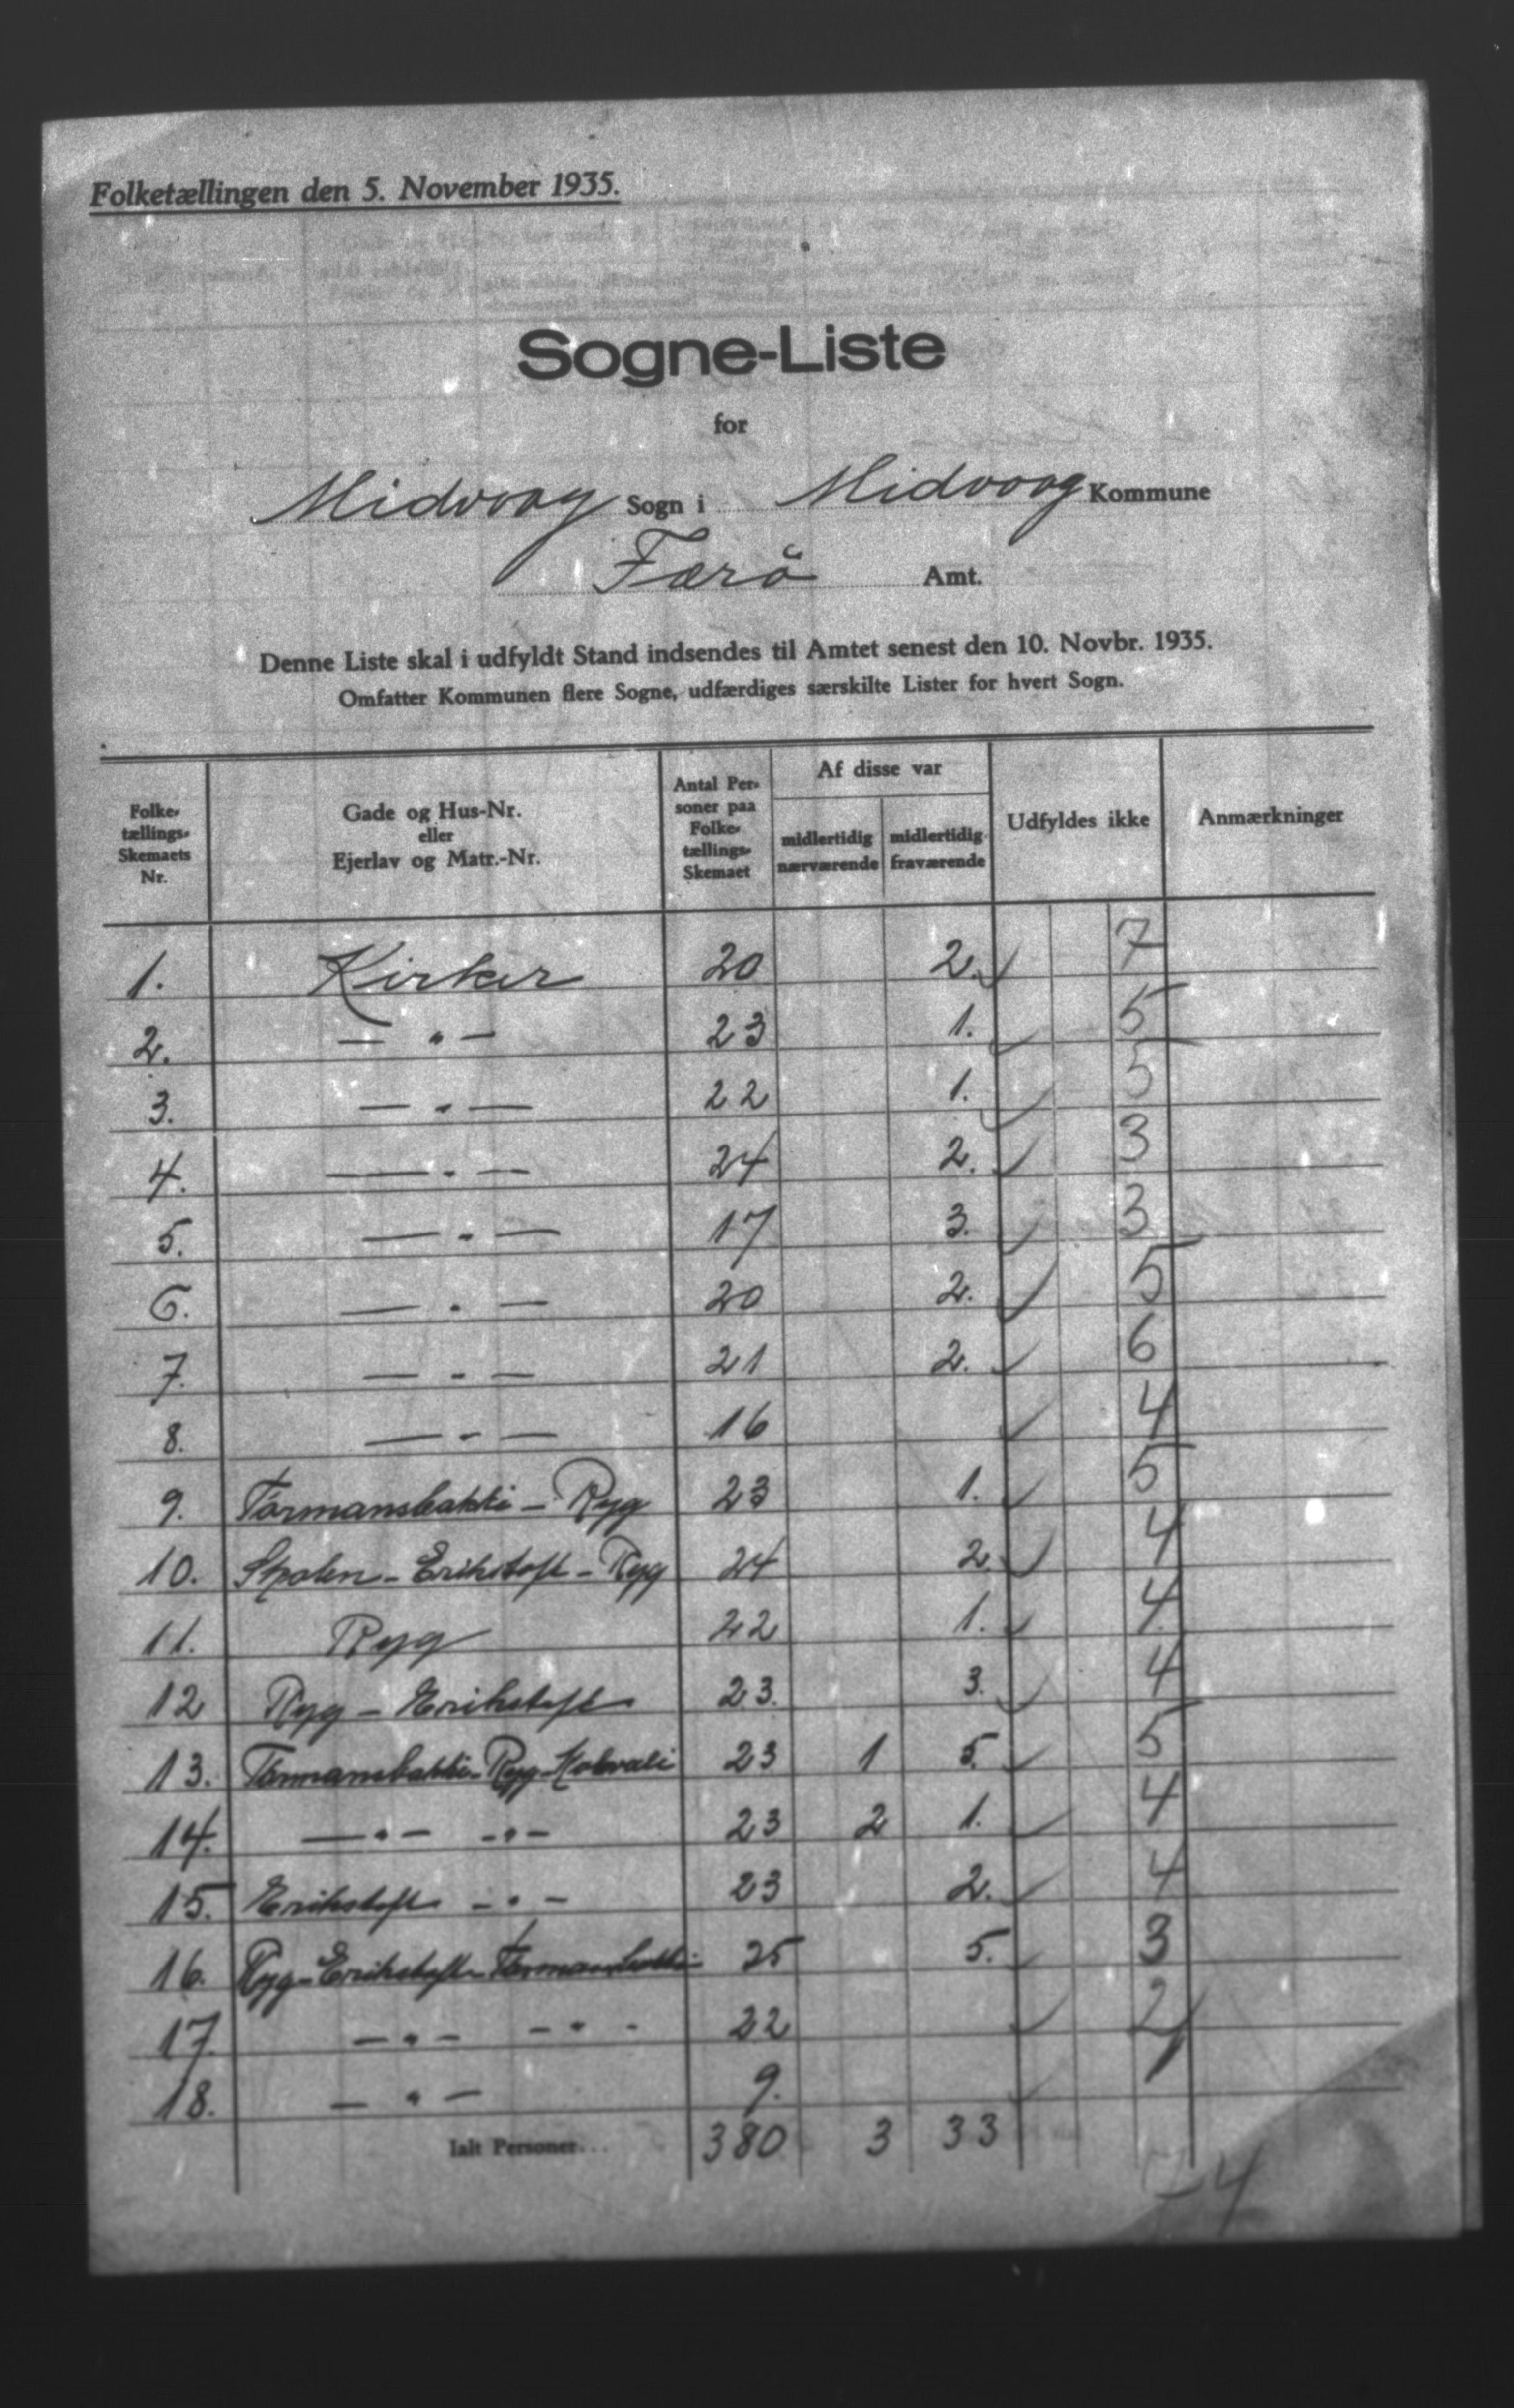 Folketællingen den 5. November 1935.
Sogne-Liste
for
Midvaag Sogn i Midvaag Kommune
Færö Amt.
Denne Liste skal i udfyldt Stand indsendes til Amtet senest den 10. Novbr. 1935.
Omfatter Kommunen flere Sogne, udfærdiges særskilte Lister for hvert Sogn.
Folke-tællings-Skemaets Nr. | Gade og Hus-Nr. eller Ejerlav og Matr.-Nr. | Antal Per-soner paa Folke-tællings-Skemaet | Af disse var midlertidig nærværende | midlertidig fraværende | Udfyldes ikke | Anmærkninger
1. Kirker 20 2. ✓ 7
2. — " — 23 1. ✓ 5
3. — " — 22 1. ✓ 5
4. — " — 24 2. ✓ 3
5. — " — 17 3. ✓ 3
6. — " — 20 2. ✓ 5
7. — " — 21 2. ✓ 6
8. — " — 16 ✓ 4
9. Tormansbakki - Ryg 23 1. ✓ 5
10. Erikstoft - Ryg 24 2. ✓ 4
11. Ryg 22 1. ✓ 4
12 Ryg - Erikstoft 23. 3. ✓ 4
13. Tormansbakki - Ryg - 23 1 5. ✓ 5
14. — " — - " - 23 2 1. ✓ 4
15. Erikstoft - " - 23 2. ✓ 4
16. Ryg - Erikstoft - Tormansbakki 25 5. ✓ 3
17. — " — - " - 22 ✓ 2
18. — " — 9. ✓ 1
Ialt Personer... 380 3 33
74